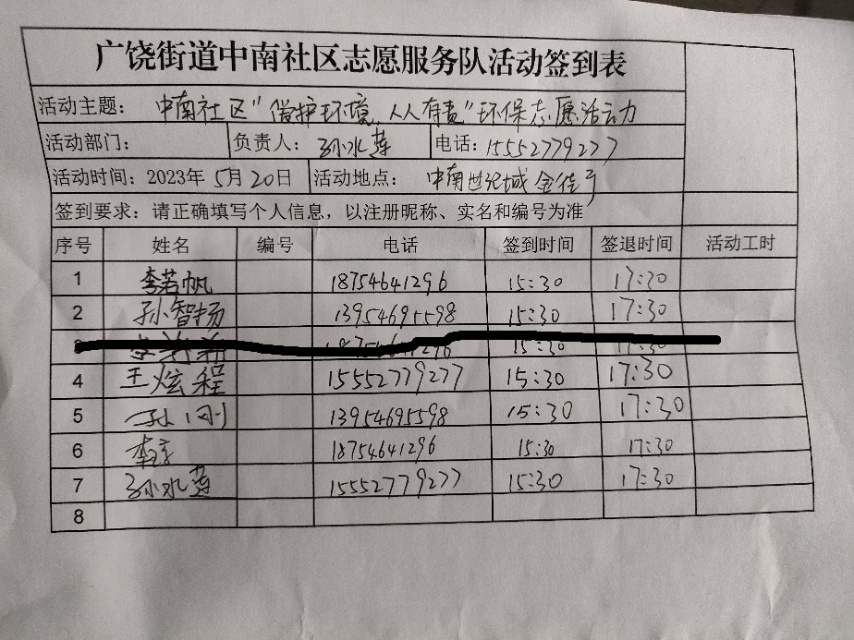 广饶街道中南社区志愿服务队活动签到表
活动主题: 中南社区"俻护环境,人人有责"环保志愿活动
活动部门: 负责人: 孙水莲 电话: 15552779277
活动时间: 2023年 5月 20日 活动地点: 中南世纪城金佳
签到要求: 请正确填写个人信息, 以注册昵称、实名和编号为准
序号 姓名 编号 电话 签到时间 签退时间 活动工时
1 李若帆 18754641296 15:30 17:30
2 孙智扬 13954695598 15:30 17:30
3 18754641296 15:30 17:30
4 王炫程 15552779277 15:30 17:30
5 孙刚 13954695598 15:30 17:30
6 李 18754641296 15:30 17:30
7 孙水莲 15552779277 15:30 17:30
8